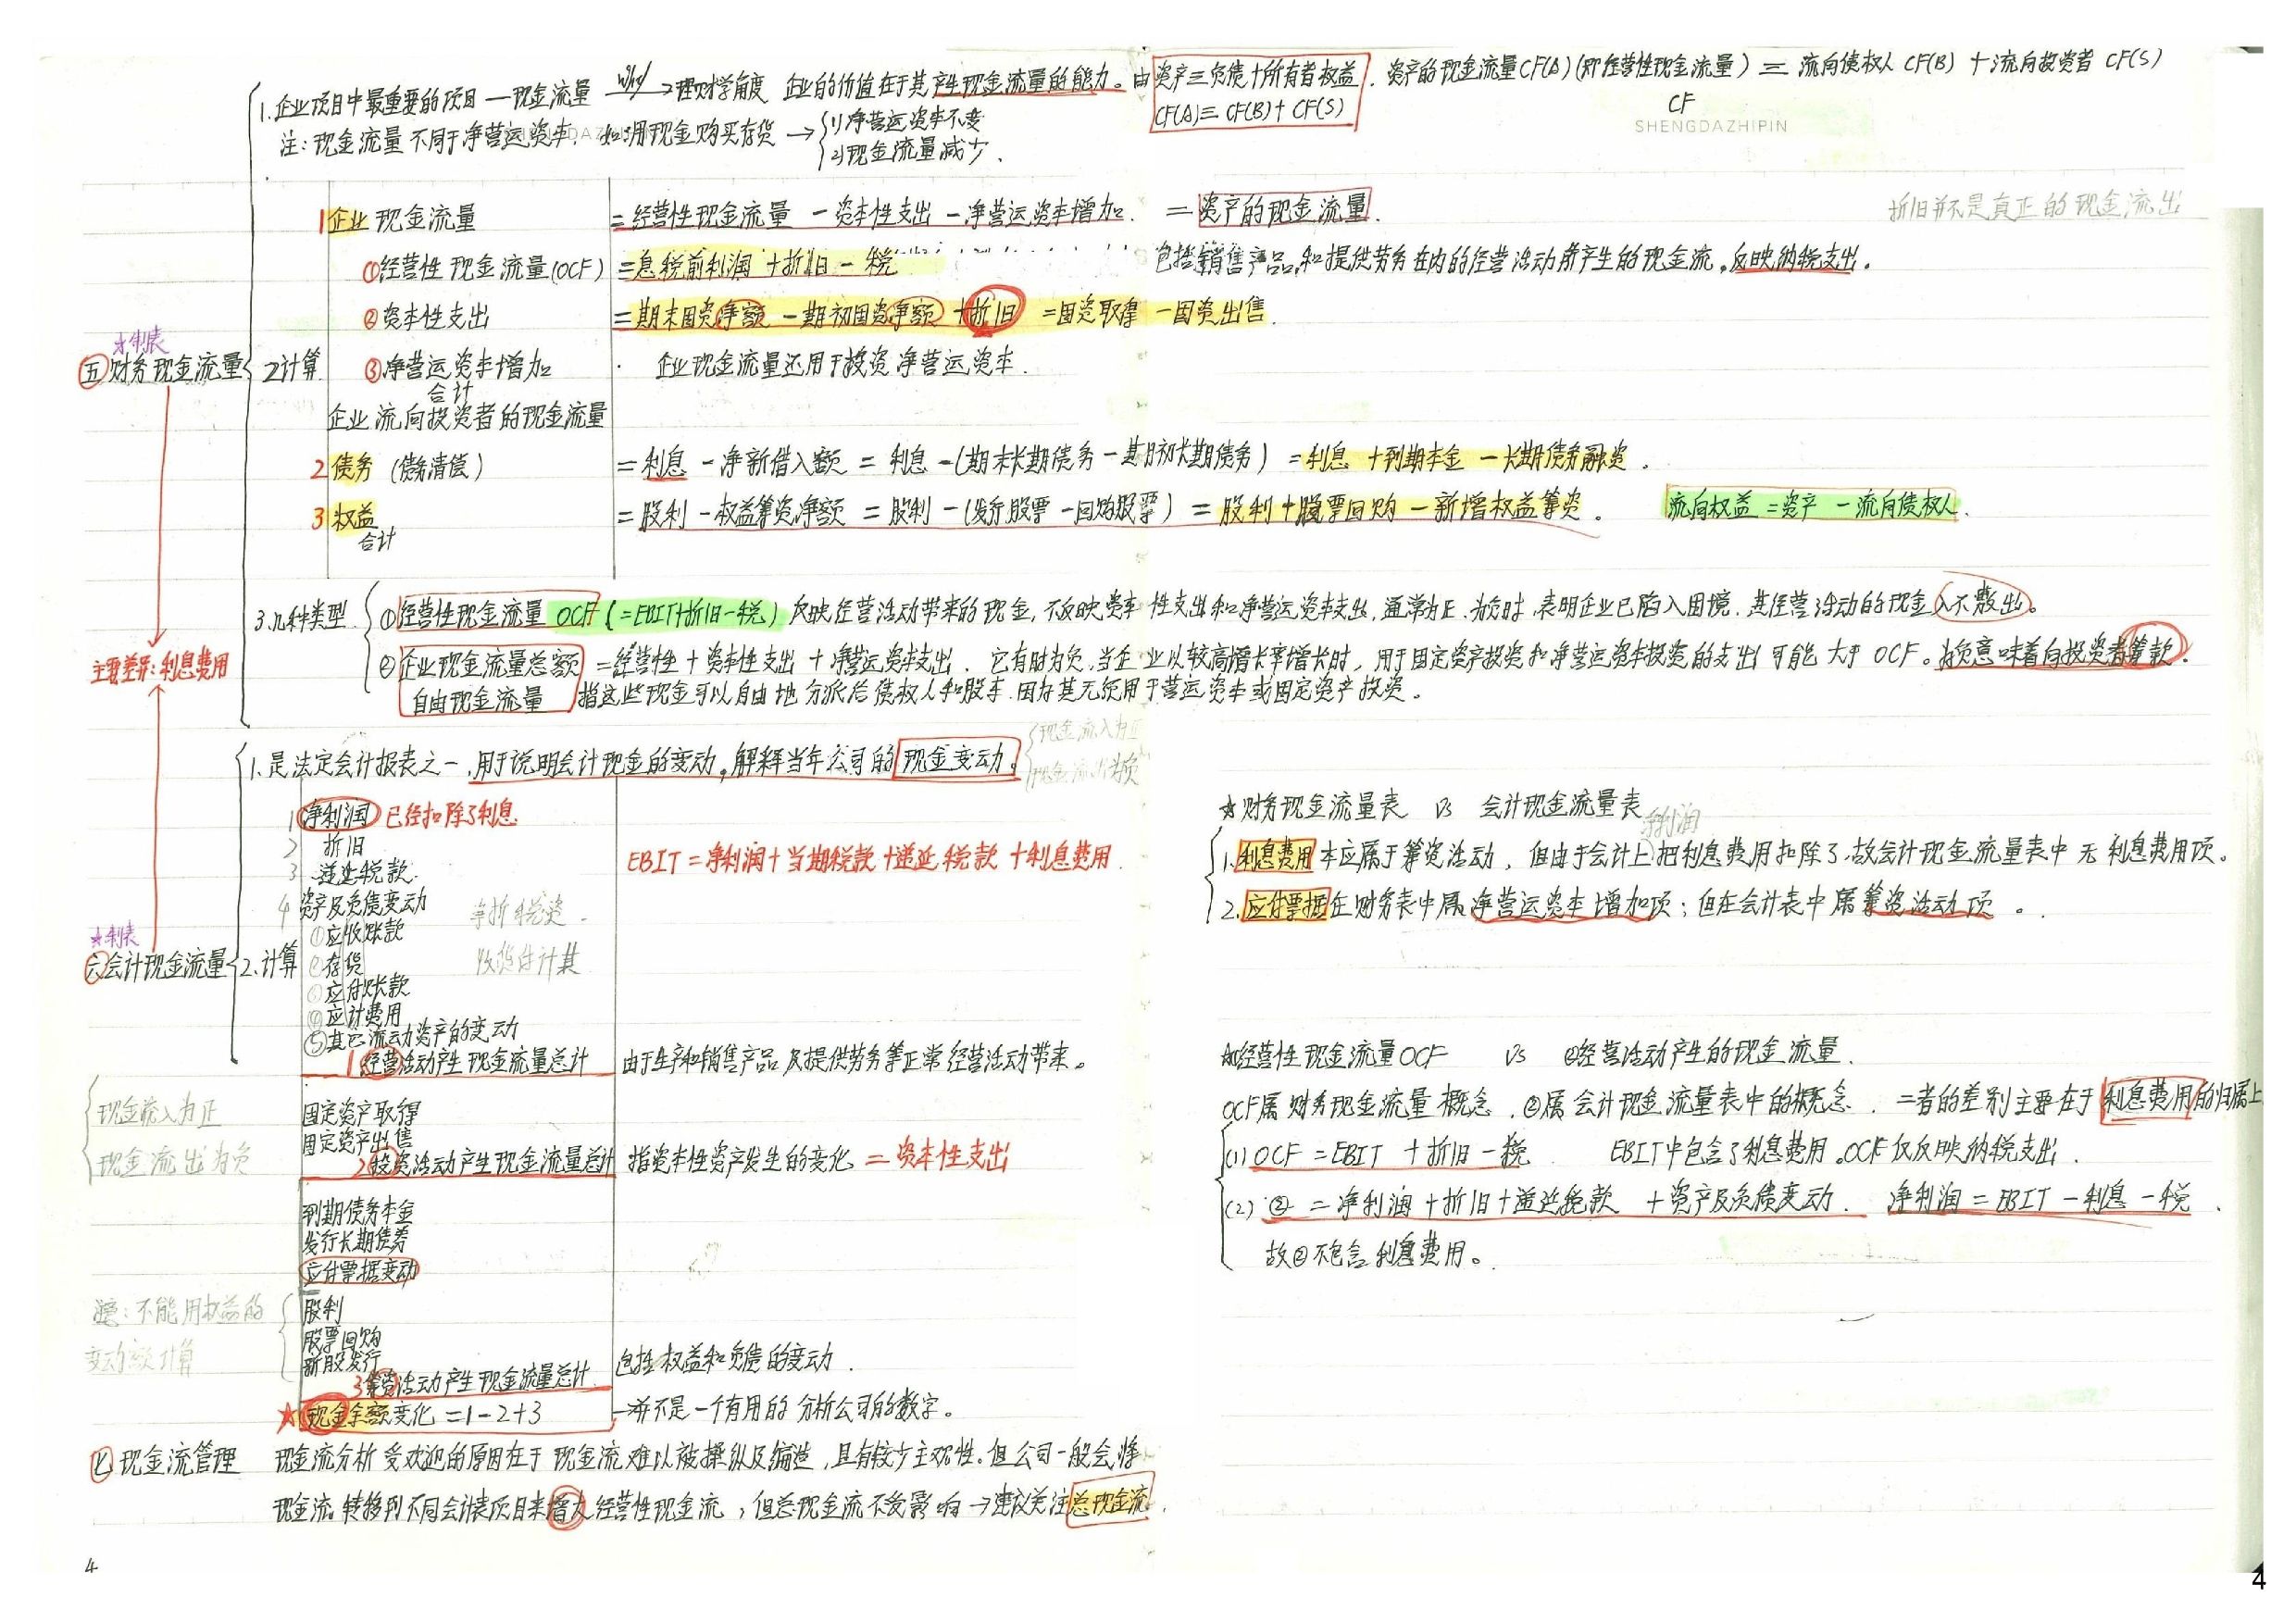 1.企业项目中最重要的项目—现金流量 why→理财学角度 企业的价值在于其产生现金流量的能力。由资产≡负债+所有者权益. 资产的现金流量CF(A)(即经营性现金流量) ≡ 流向债权人 CF(B) + 流向投资者 CF(S)
CF(A)≡CF(B)+CF(S)
CF
SHENGDAZHIPIN
注:现金流量不同于净营运资本. 如:用现金购买存货→ 1)净营运资本不变
2)现金流量减少.
折旧并不是真正的现金流出
五 财务现金流量
☆制表
2计算
1企业 现金流量 =经营性现金流量 -资本性支出 -净营运资本增加. =资产的现金流量.
①经营性现金流量(OCF) =息税前利润+折旧-税 包括销售产品和提供劳务在内的经营活动所产生的现金流。反映纳税支出.
②资本性支出 =期末固资净额 -期初固资净额 +折旧 =固资取得 -固资出售.
③净营运资本增加 企业现金流量还用于投资净营运资本.
合计
企业流向投资者的现金流量
2债务(债务清偿) =利息 -净新借入额 = 利息-(期末长期债务-期初长期债务) =利息 +到期本金 -长期债务融资.
3权益 =股利-权益筹资净额 =股利-(发行股票-回购股票) = 股利+股票回购-新增权益筹资。 流向权益=资产 -流向债权人.
合计
3.几种类型 ①经营性现金流量 OCF (=EBIT+折旧-税) 反映经营活动带来的现金,不反映资本性支出和净营运资本支出,通常为正.为负时,表明企业已陷入困境.其经营活动的现金入不敷出。
主要差异:利息费用
②企业现金流量总额 =经营性+资本性支出+净营运资本支出. 它有时为负,当企业以较高增长率增长时,用于固定资产投资和净营运资本投资的支出可能大于OCF。为负意味着向投资者筹款.
自由现金流量 指这些现金可以自由地分派给债权人和股东.因为其无须用于营运资本或固定资产投资。
六 会计现金流量
☆制表
1.是法定会计报表之一,用于说明会计现金的变动。解释当年公司的现金变动。
现金流入为正
现金流出为负
2.计算
1 净利润 已经扣除了利息.
2 折旧
3 递延税款.
EBIT=净利润+当期税款+递延税款+利息费用.
4 资产及负债变动 净折税资.
①应收账款
②存货 收货付计其
③应付账款
④应计费用
⑤其它流动资产的变动
1经营活动产生现金流量总计 由于生产和销售产品及提供劳务等正常经营活动带来。
现金流入为正
现金流出为负
固定资产取得
固定资产出售
2投资活动产生现金流量总计 指资本性资产发生的变化 = 资本性支出
到期债务本金
发行长期债券
应付票据变动
注意:不能用权益的
变动额计算
股利
股票回购
新股发行
3筹资活动产生现金流量总计 包括权益和负债的变动.
★现金余额变化=1-2+3 →并不是一个有用的分析公司的数字。
七 现金流管理 现金流分析受欢迎的原因在于现金流难以被操纵及编造,具有较少主观性。但公司一般会将
现金流转移到不同会计表项目来增大经营性现金流;但总现金流不受影响→建议关注总现金流.
☆财务现金流量表 VS 会计现金流量表
净利润
1.利息费用本应属于筹资活动,但由于会计上把利息费用扣除了.故会计现金流量表中无利息费用项。
2.应付票据在财务表中属净营运资本增加项;但在会计表中属筹资活动项。
☆①经营性现金流量OCF VS ②经营活动产生的现金流量.
OCF属财务现金流量概念.②属会计现金流量表中的概念. 二者的差别主要在于利息费用的归属上
(1)OCF=EBIT+折旧-税 EBIT中包含了利息费用。OCF仅反映纳税支出.
(2)②=净利润+折旧+递延税款+资产及负债变动. 净利润=EBIT-利息-税.
故②不包含利息费用。
4
4